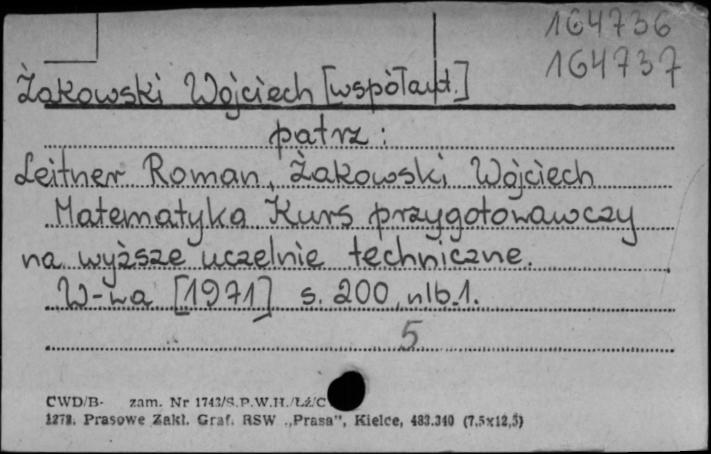 164736
164737
Żakowski Wojciech [współaut.]
patrz:
Leitner Roman, Żakowski Wojciech
Matematyka Kurs przygotowawczy
na wyższe uczelnie techniczne.
W-wa [1971] s. 200, nlb. 1.
5
CWD/B- zam. Nr 1743/S.P.W.H./Łź/C
Prasowe Zakł. Graf. RSW „Prasa”, Kielce, 483.340 (7,5x12,5)